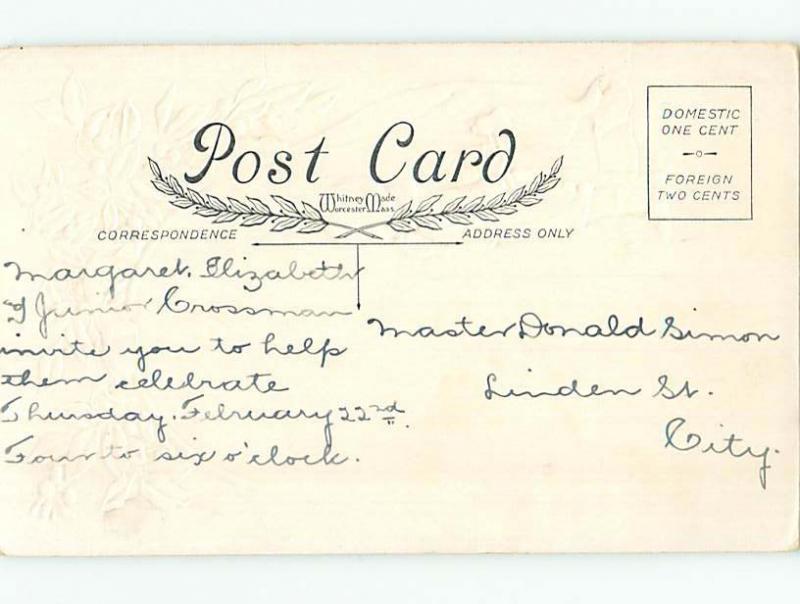 Post Card
Whitney Made
Worcester Mass
DOMESTIC
ONE CENT
FOREIGN
TWO CENTS
CORRESPONDENCE
ADDRESS ONLY
Margaret, Elizabeth
& Junior Crossman
invite you to help
them celebrate
Thursday, February 22nd.
Four to six o'clock.
Master Donald Simon
Linden St.
City.